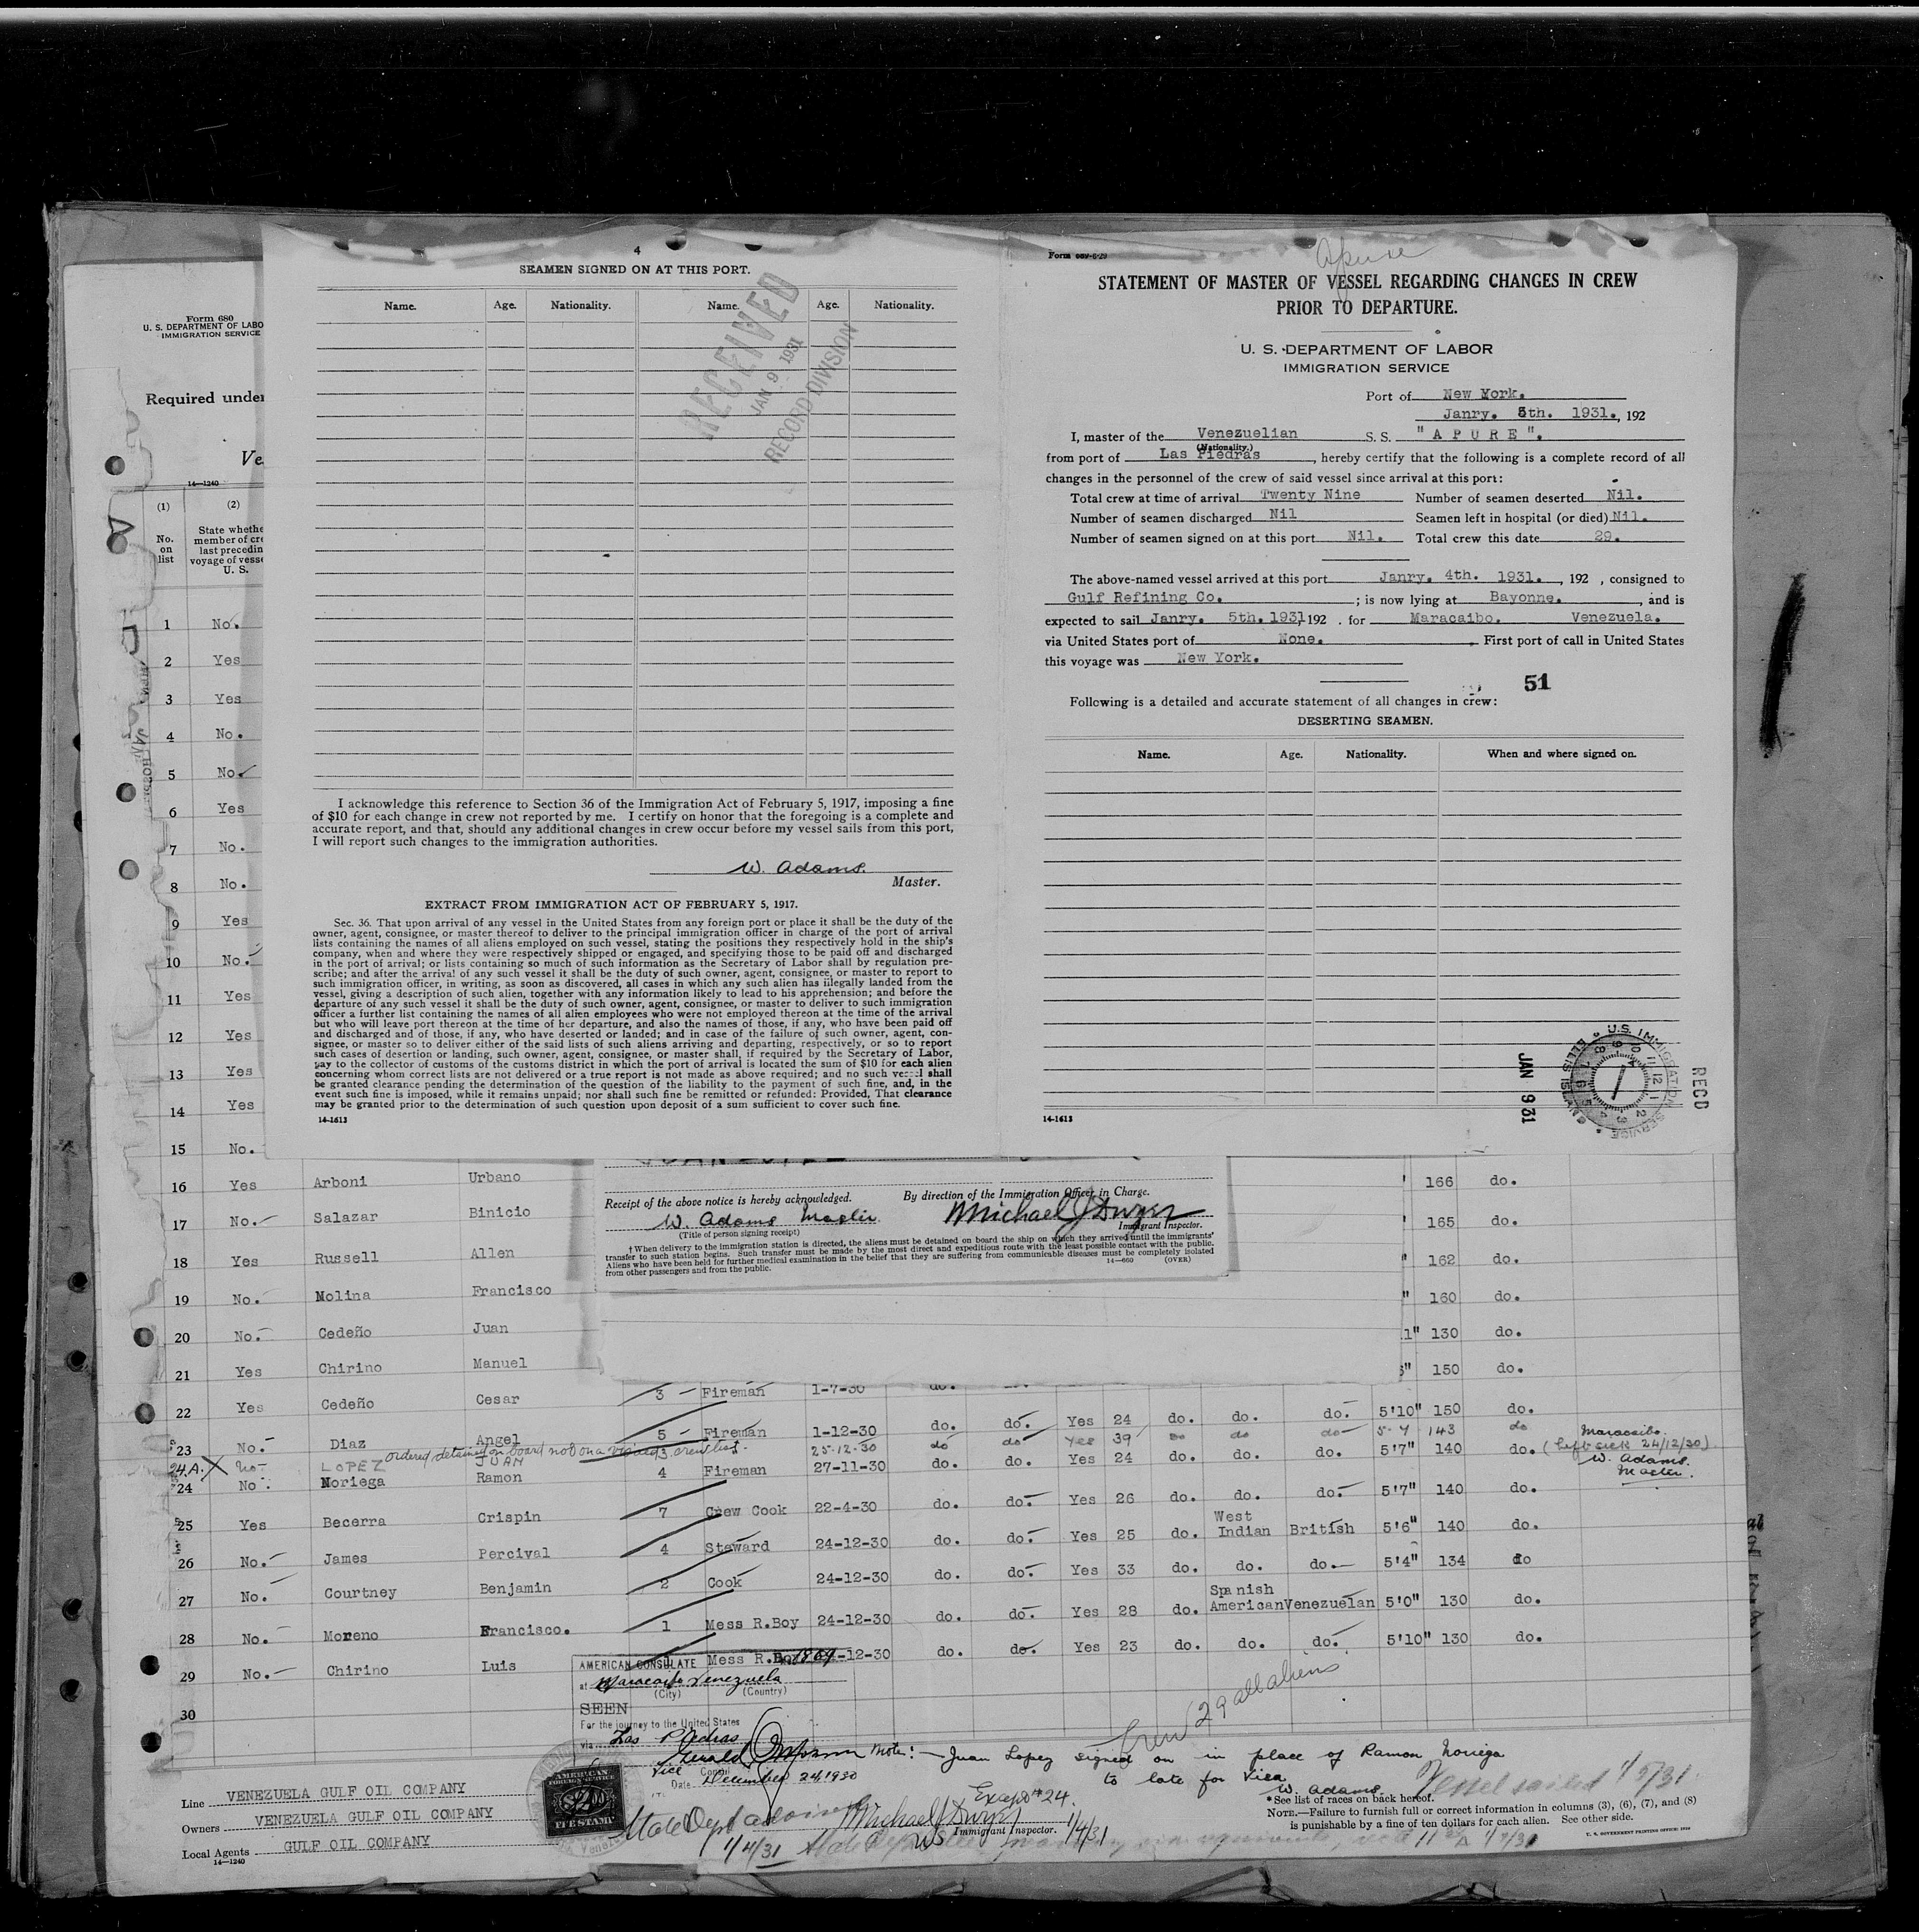 4
SEAMEN SIGNED ON AT THIS PORT.
Name. Age. Nationality. Name. Age. Nationality.
RECEIVED
JAN 9 1931
RECORD DIVISION
I acknowledge this reference to Section 36 of the Immigration Act of February 5, 1917, imposing a fine
of $10 for each change in crew not reported by me. I certify on honor that the foregoing is a complete and
accurate report, and that, should any additional changes in crew occur before my vessel sails from this port,
I will report such changes to the immigration authorities.
W. Adams.
Master.
EXTRACT FROM IMMIGRATION ACT OF FEBRUARY 5, 1917.
Sec. 36. That upon arrival of any vessel in the United States from any foreign port or place it shall be the duty of the
owner, agent, consignee, or master thereof to deliver to the principal immigration officer in charge of the port of arrival
lists containing the names of all aliens employed on such vessel, stating the positions they respectively hold in the ship's
company, when and where they were respectively shipped or engaged, and specifying those to be paid off and discharged
in the port of arrival; or lists containing so much of such information as the Secretary of Labor shall by regulation pre-
scribe; and after the arrival of any such vessel it shall be the duty of such owner, agent, consignee, or master to report to
such immigration officer, in writing, as soon as discovered, all cases in which any such alien has illegally landed from the
vessel, giving a description of such alien, together with any information likely to lead to his apprehension; and before the
departure of any such vessel it shall be the duty of such owner, agent, consignee, or master to deliver to such immigration
officer a further list containing the names of all alien employees who were not employed thereon at the time of the arrival
but who will leave port thereon at the time of her departure, and also the names of those, if any, who have been paid off
and discharged and of those, if any, who have deserted or landed; and in case of the failure of such owner, agent, con-
signee, or master so to deliver either of the said lists of such aliens arriving and departing, respectively, or so to report
such cases of desertion or landing, such owner, agent, consignee, or master shall, if required by the Secretary of Labor,
pay to the collector of customs of the customs district in which the port of arrival is located the sum of $10 for each alien
concerning whom correct lists are not delivered or a true report is not made as above required; and no such vessel shall
be granted clearance pending the determination of the question of the liability to the payment of such fine, and, in the
event such fine is imposed, while it remains unpaid; nor shall such fine be remitted or refunded: Provided, That clearance
may be granted prior to the determination of such question upon deposit of a sum sufficient to cover such fine.
14-1613
Form 689-6-29
Apure
STATEMENT OF MASTER OF VESSEL REGARDING CHANGES IN CREW
PRIOR TO DEPARTURE.
U. S. DEPARTMENT OF LABOR
IMMIGRATION SERVICE
Port of New York.
Janry. 5th. 1931., 192
I, master of the Venezuelian S.S. "A P U R E".
(Nationality.)
from port of Las Piedras, hereby certify that the following is a complete record of all
changes in the personnel of the crew of said vessel since arrival at this port:
Total crew at time of arrival Twenty Nine Number of seamen deserted Nil.
Number of seamen discharged Nil Seamen left in hospital (or died) Nil.
Number of seamen signed on at this port Nil. Total crew this date 29.
The above-named vessel arrived at this port Janry. 4th. 1931., 192 , consigned to
Gulf Refining Co. ; is now lying at Bayonne., and is
expected to sail Janry. 5th. 1931, 192 . for Maracaibo. Venezuela.
via United States port of None. First port of call in United States
this voyage was New York.
51
Following is a detailed and accurate statement of all changes in crew:
DESERTING SEAMEN.
Name. Age. Nationality. When and where signed on.
JAN 9 31
U.S. IMMIGRATION SERVICE
RECD
14-1613
Form 680
U. S. DEPARTMENT OF LABO
IMMIGRATION SERVICE
Required under
Ve
14-1240
(1) (2)
No. on list
State whethe
member of cre
last precedin
voyage of vesse
U. S.
1 No.
2 Yes
3 Yes
4 No.
5 No.
6 Yes
7 No.
8 No.
9 Yes
10 No.
11 Yes
12 Yes
13 Yes
14 Yes
15 No.
16 Yes Arboni Urbano 166 do.
17 No.- Salazar Binicio 165 do.
18 Yes Russell Allen 162 do.
19 No.- Molina Francisco 160 do.
20 No.- Cedeño Juan 1" 130 do.
21 Yes Chirino Manuel 150 do.
22 Yes Cedeño Cesar 3 - Fireman 1-7-30 do.
23 No.- Diaz Angel 5 - Fireman 1-12-30 do. do. Yes 24 do. do. do. 5'10" 150 do.
ordered detained on board not on a visaed crew list.
24.A. X No- LOPEZ JUAN 3 25-12-30 do do Yes 39 do do do 5-4 143 do
24 No. Noriega Ramon 4 Fireman 27-11-30 do. do. Yes 24 do. do. do. 5'7" 140 do. (left sick 24/12/30)
Maracaibo.
W. Adams.
Master.
25 Yes Becerra Crispin 7 Crew Cook 22-4-30 do. do. Yes 26 do. do. do. 5'7" 140 do.
26 No.- James Percival 4 Steward 24-12-30 do. do. Yes 25 do. West Indian British 5'6" 140 do.
27 No. Courtney Benjamin 2 Cook 24-12-30 do. do. Yes 33 do. do. do. 5'4" 134 do
28 No. Moreno Francisco. 1 Mess R.Boy 24-12-30 do. do. Yes 28 do. Spanish American Venezuelan 5'0" 130 do.
29 No.- Chirino Luis Mess R.Boy -12-30 do. do. Yes 23 do. do. do. 5'10" 130 do.
30
Receipt of the above notice is hereby acknowledged. By direction of the Immigration Officer in Charge.
W. Adams Master. Michael J Dwyer
(Title of person signing receipt) Immigrant Inspector.
†When delivery to the immigration station is directed, the aliens must be detained on board the ship on which they arrived until the immigrants'
transfer to such station begins. Such transfer must be made by the most direct and expeditious route with the least possible contact with the public.
Aliens who have been held for further medical examination in the belief that they are suffering from communicable diseases must be completely isolated
from other passengers and from the public. 14-660 (OVER)
AMERICAN CONSULATE
at Maracaibo Venezuela
(City) (Country)
SEEN
For the journey to the United States
via Las Piedras
Vice Consul
Date December 24, 1930
AMERICAN
FOREIGN SERVICE
FEE STAMP
Crew 29 all aliens
Note:- Juan Lopez signed on in place of Ramon Noriega
to late for Visa
W. Adams.
Vessel sailed 1/5/31.
Except #24.
Michael J Dwyer
Immigrant Inspector. 1/4/31
State Dept advised
1/4/31
Line VENEZUELA GULF OIL COMPANY
Owners VENEZUELA GULF OIL COMPANY
Local Agents GULF OIL COMPANY
14-1240
*See list of races on back hereof.
NOTE.—Failure to furnish full or correct information in columns (3), (6), (7), and (8)
is punishable by a fine of ten dollars for each alien. See other side.